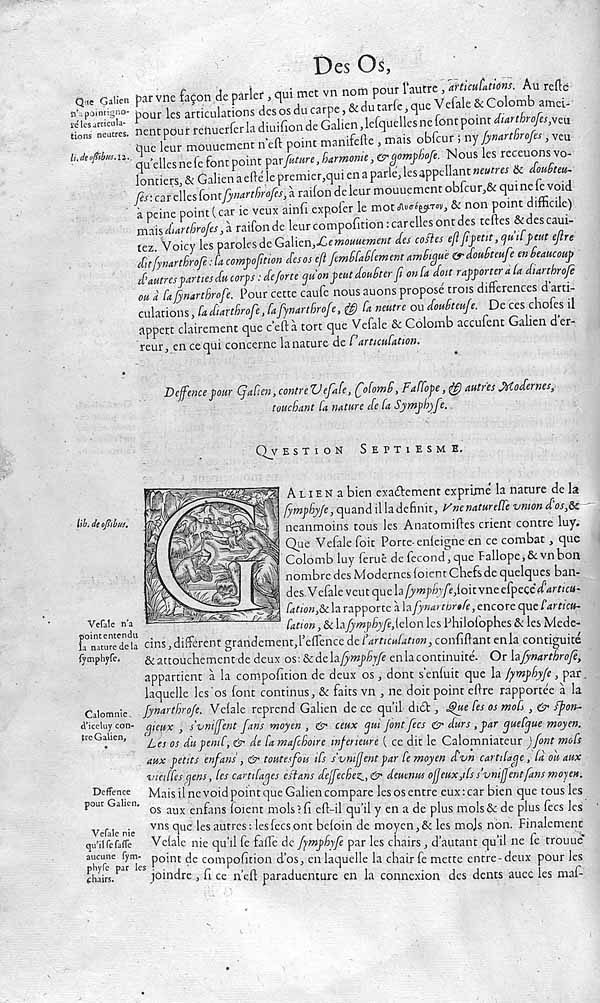 Des Os,
Que Galien
n'a point igno-
ré les articula-
tions neutres.
li. de ossibus. 12.
par vne façon de parler, qui met vn nom pour l'autre, articulations. Au reste
pour les articulations des os du carpe, & du tarse, que Vesale & Colomb amei-
nent pour renuerser la diuision de Galien, lesquelles ne sont point diarthroses, veu
que leur mouuement n'est point manifeste, mais obscur; ny synarthroses, veu
qu'elles ne se font point par suture, harmonie, & gomphose. Nous les receuons vo-
lontiers, & Galien a esté le premier, qui en a parlé, les appellant neutres & doubteu-
ses: car elles sont synarthroses, à raison de leur mouuement obscur, & qui ne se void
à peine point (car ie veux ainsi exposer le mot & non point difficile)
mais diarthroses, à raison de leur composition: car elles ont des testes & des caui-
tez. Voicy les paroles de Galien, Le mouuement des costes est si petit, qu'il peut estre
dit synarthrose: la composition des os est semblablement ambiguë & doubteuse en beaucoup
d'autres parties du corps: de sorte qu'on peut doubter si on la doit rapporter à la diarthrose
ou à la synarthrose. Pour cette cause nous auons proposé trois differences d'arti-
culations, la diarthrose, la synarthrose, & la neutre ou doubteuse. De ces choses il
appert clairement que c'est à tort que Vesale & Colomb accusent Galien d'er-
reur, en ce qui concerne la nature de l'articulation.
Deffence pour Galien, contre Vesale, Colomb, Fallope, & autres Modernes,
touchant la nature de la Symphyse.
QVESTION SEPTIESME.
lib. de ossibus.
GALIEN a bien exactement exprimé la nature de la
symphyse, quand il la definit, Vne naturelle vnion d'os, &
neanmoins tous les Anatomistes crient contre luy.
Que Vesale soit Porte-enseigne en ce combat, que
Colomb luy serue de second, que Fallope, & vn bon
nombre des Modernes soient Chefs de quelques ban-
des. Vesale veut que la symphyse, soit vne espece d'articu-
lation, & la rapporte à la synarthrose, encore que l'articu-
lation, & la symphyse, selon les Philosophes & les Mede-
cins, different grandement, l'essence de l'articulation, consistant en la contiguité
& attouchement de deux os: & de la symphyse en la continuité. Or la synarthrose,
appartient à la composition de deux os, dont s'ensuit que la symphyse, par
laquelle les os sont continus, & faits vn, ne doit point estre rapportée à la
synarthrose. Vesale reprend Galien de ce qu'il dict, Que les os mols, & spon-
gieux, s'vnissent sans moyen, & ceux qui sont secs & durs, par quelque moyen.
Les os du penil, & de la maschoire inferieure (ce dit le Calomniateur) sont mols
aux petits enfans, & toutesfois ils s'vnissent par le moyen d'vn cartilage, là où aux
vieilles gens, les cartilages estans dessechez, & deuenus osseux, ils s'vnissent sans moyen.
Mais il ne void point que Galien compare les os entre eux: car bien que tous les
os aux enfans soient mols? si est-il qu'il y en a de plus mols & de plus secs les
vns que les autres: les secs ont besoin de moyen, & les mols non. Finalement
Vesale nie qu'il se fasse de symphyse par les chairs, d'autant qu'il ne se trouue
point de composition d'os, en laquelle la chair se mette entre-deux pour les
joindre, si ce n'est paraduenture en la connexion des dents auec les mas-
Vesale n'a
point entendu
la nature de la
symphyse.
Calomnie
d'iceluy con-
tre Galien.
Deffence
pour Galien.
Vesale nie
qu'il se fasse
aucune sym-
physe par les
chairs.